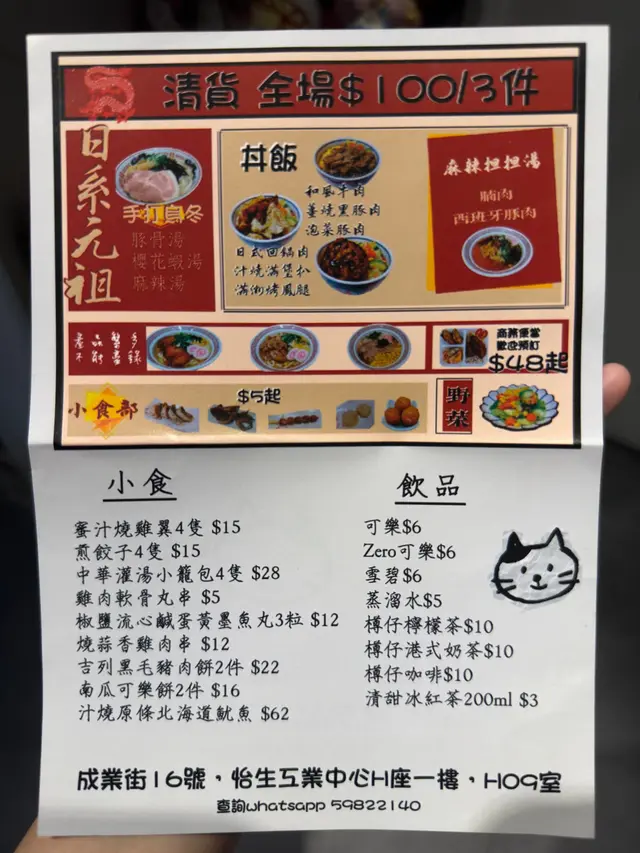 清貨 全場$100/3件
日系元祖
手打烏冬
豚骨湯
櫻花蝦湯
麻辣湯
丼飯
和風牛肉
薑燒黑豚肉
泡菜豚肉
日式回鍋肉
汁燒滿堡扒
滿俐烤鳳腿
麻辣担担湯
腩肉
西班牙豚肉
商務便當
歡迎預訂
$48起
小食部
$5起
野菜
小食
蜜汁燒雞翼4隻 $15
煎餃子4隻 $15
中華灌湯小籠包4隻 $28
雞肉軟骨丸串 $5
椒鹽流心鹹蛋黃墨魚丸3粒 $12
燒蒜香雞肉串 $12
吉列黑毛豬肉餅2件 $22
南瓜可樂餅2件 $16
汁燒原條北海道魷魚 $62
飲品
可樂$6
Zero可樂$6
雪碧$6
蒸溜水$5
樽仔檸檬茶$10
樽仔港式奶茶$10
樽仔咖啡$10
清甜冰紅茶200ml $3
成業街16號，怡生工業中心H座一樓，H09室
查詢whatsapp 59822140